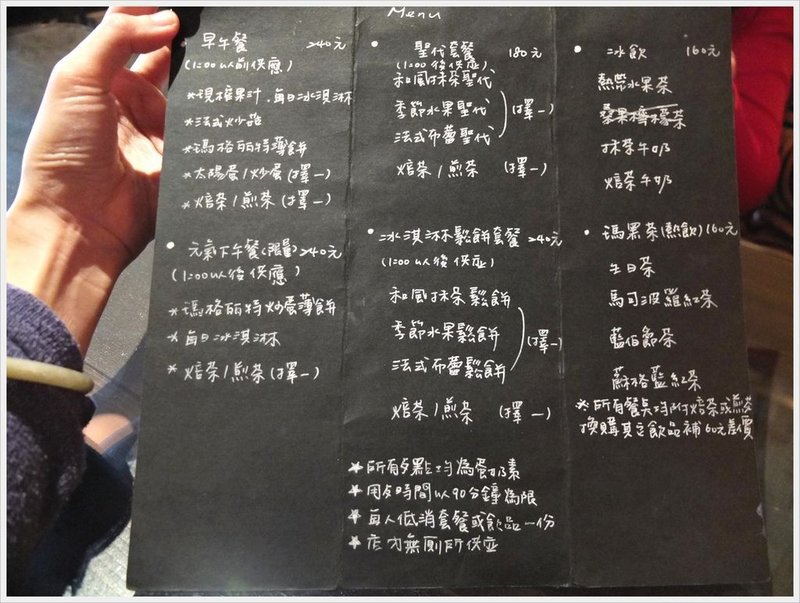 Menu
• 早午餐 240元
(1:00以前供應)
*現榨果汁.每日冰淇淋
*法式炒蔬
*瑪格麗特薄餅
*太陽蛋/炒蛋(擇一)
*焙茶/煎茶(擇一)
• 元氣下午餐(限量)240元
(1:00以後供應)
*瑪格麗特炒蛋薄餅
*每日冰淇淋
*焙茶/煎茶(擇一)
• 聖代套餐 180元
(1:00後供应)
和風抹茶聖代
季節水果聖代 (擇一)
法式布蕾聖代
焙茶/煎茶 (擇一)
• 冰淇淋鬆餅套餐 240元
(1:00以後供应)
和風抹茶鬆餅
季節水果鬆餅 (擇一)
法式布蕾鬆餅
焙茶/煎茶 (擇一)
★所有歺點均為蛋奶素
★用歺時間以90分鐘為限
★每人低消套餐或飲品一份
★店內無廁所供应
• 冰飲 160元
熱帶水果茶
桑果檸檬茶
抹茶牛奶
焙茶牛奶
• 瑪黑茶(熱飲)160元
生日茶
馬可波羅紅茶
藍伯爵茶
蘇格藍紅茶
※所有餐点均附焙茶或煎茶
換購其它飲品補60元差價